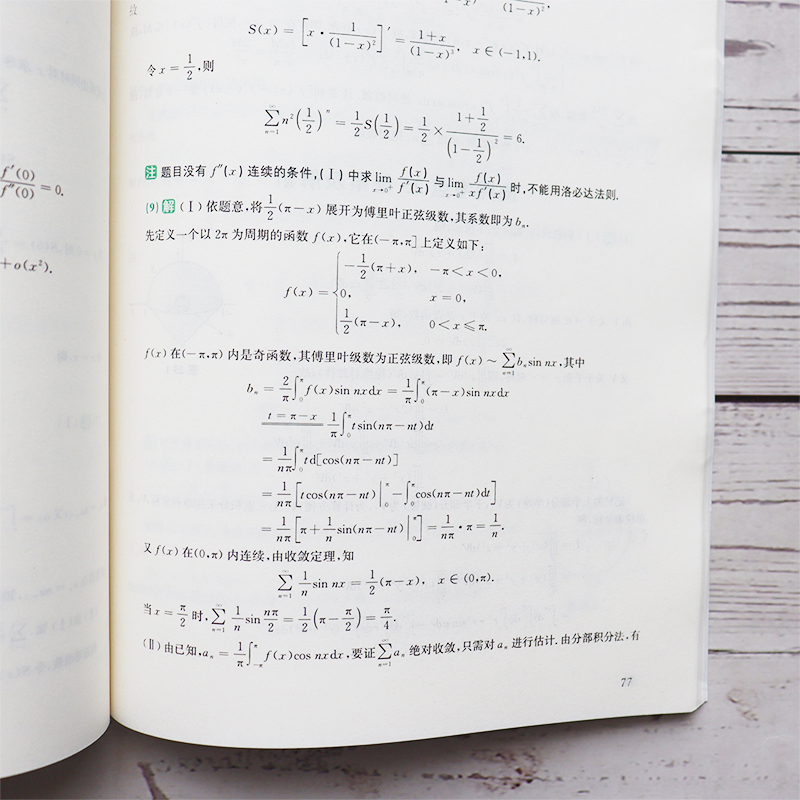 f′(0)
f″(0) = 0.
+o(x²).
S(x) = [x · 1/(1-x)²]′ = (1+x)/(1-x)³, x∈(-1,1).
令 x = 1/2, 则
∑_{n=1}^{∞} n²(1/2)ⁿ = 1/2 S(1/2) = 1/2 × (1+1/2)/(1-1/2)³ = 6.
注 题目没有 f″(x) 连续的条件,(Ⅰ) 中求 lim_{x→0⁺} f(x)/f′(x) 与 lim_{x→0⁺} f(x)/(xf′(x)) 时,不能用洛必达法则.
(9) 解 (Ⅰ)依题意,将 1/2(π-x) 展开为傅里叶正弦级数,其系数即为 bₙ.
先定义一个以 2π 为周期的函数 f(x),它在(-π,π]上定义如下:
-1/2(π+x), -π<x<0,
f(x) = { 0, x=0,
1/2(π-x), 0<x≤π.
f(x) 在(-π,π) 内是奇函数,其傅里叶级数为正弦级数,即 f(x) ~ ∑_{n=1}^{∞} bₙ sin nx,其中
bₙ = 2/π ∫₀^π f(x)sin nxdx = 1/π ∫₀^π (π-x)sin nxdx
t = π-x 1/π ∫₀^π tsin(nπ-nt)dt
= 1/(nπ) ∫₀^π td[cos(nπ-nt)]
= 1/(nπ) [tcos(nπ-nt)|₀^π - ∫₀^π cos(nπ-nt)dt]
= 1/(nπ) [π + 1/n sin(nπ-nt)|₀^π] = 1/(nπ) · π = 1/n.
又 f(x) 在(0,π) 内连续,由收敛定理,知
∑_{n=1}^{∞} 1/n sin nx = 1/2(π-x), x∈(0,π).
当 x = π/2 时,∑_{n=1}^{∞} 1/n sin nπ/2 = 1/2(π-π/2) = π/4.
(Ⅱ)由已知,aₙ = 1/π ∫_{-π}^{π} f(x)cos nxdx,要证 ∑_{n=1}^{∞} aₙ 绝对收敛,只需对 aₙ 进行估计.由分部积分法,有
77